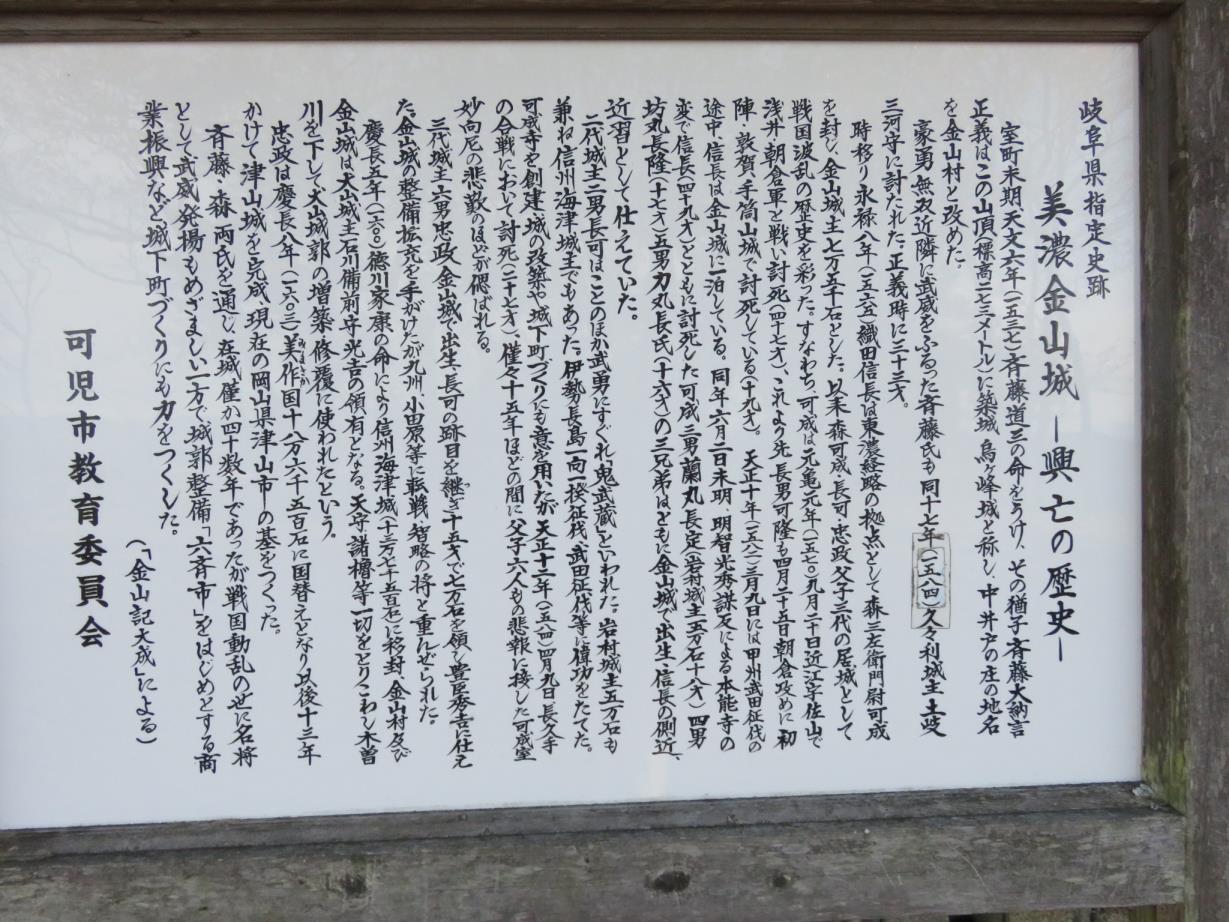 岐阜県指定史跡
美濃金山城 ー興亡の歴史ー
室町末期天文六年(一五三七)斉藤道三の命をうけ、その猶子斉藤大納言
正義はこの山頂(標高二七三メートル)に築城、烏ヶ峰城と称し、中井戸の庄の地名
を金山村と改めた。
豪勇無双近隣に武威をふるった斉藤氏も同十七年(一五八四)久々利城主土岐
三河守に討たれた。正義時に三十三才。
時移り永禄八年(一五六五)織田信長は東濃経略の拠点として森三左衛門尉可成
を封じ、金山城主七万五千石とした。以来森可成・長可・忠政父子三代の居城として
戦国波乱の歴史を彩った。すなわち、可成は元亀元年(一五七〇)九月二十日近江宇佐山で
浅井・朝倉軍と戦い討死(四十七才)、これより先長男可隆も四月二十五日朝倉攻めに初
陣、敦賀、手筒山城で討死している(十九才)。天正十年(一五八二)三月九日には甲州武田征伐の
途中、信長は金山城に一泊している。同年六月二日未明、明智光秀謀反による本能寺の
変で信長(四十九才)とともに討死した可成三男蘭丸長定(岩村城主五万石十八才)四男
坊丸長隆(十七才)五男力丸長氏(十六才)の三兄弟はともに金山城で出生、信長の側近、
近習として仕えていた。
二代城主二男長可はことのほか武勇にすぐれ“鬼武蔵”といわれた。岩村城主五万石も
兼ね信州海津城主でもあった。伊勢長島一向一揆征伐、武田征伐等に偉功をたてた。
可成寺を創建、城の改築や、城下町づくりにも意を用いたが天正十二年(一五八四)四月九日長久手
の合戦において討死(二十七才)、僅々十五年ほどの間に父子六人もの悲報に接した可成室
妙向尼の悲歎のほどが偲ばれる。
三代城主六男忠政、金山城で出生、長可の跡目を継ぎ十五才で七万石を領し豊臣秀吉に仕え
た。金山城の整備拡充を手がけたが九州、小田原等に転戦、智略の将と重んぜられた。
慶長五年(一六〇〇)徳川家康の命により信州海津城(十三万七千五百石)に移封、金山村及び
金山城は犬山城主石川備前守光吉の領有となる。天守、諸櫓等一切をとりこわし木曽
川を下して犬山城郭の増築、修覆に使われたという。
忠政は慶長八年(一六〇三)美作国十八万六千五百石に国替えとなり以後十三年
かけて津山城を完成、現在の岡山県津山市の基をつくった。
斉藤、森両氏を通じ、在城僅か四十数年であったが戦国動乱の世に名将
として武威発揚もめざましい一方で城郭整備「六斉市」をはじめとする商
業振興など城下町づくりにも力をつくした。
(「金山記大成」による)
可児市教育委員会